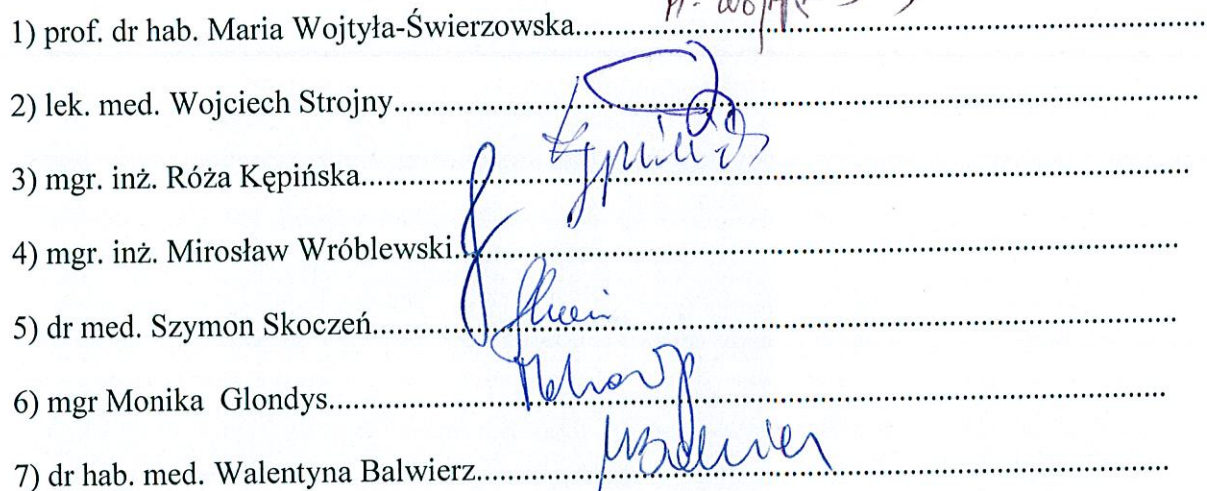 1) prof. dr hab. Maria Wojtyła-Świerzowska..........
2) lek. med. Wojciech Strojny..........
3) mgr. inż. Róża Kępińska..........
4) mgr. inż. Mirosław Wróblewski..........
5) dr med. Szymon Skoczeń..........
6) mgr Monika  Glondys..........
7) dr hab. med. Walentyna Balwierz..........